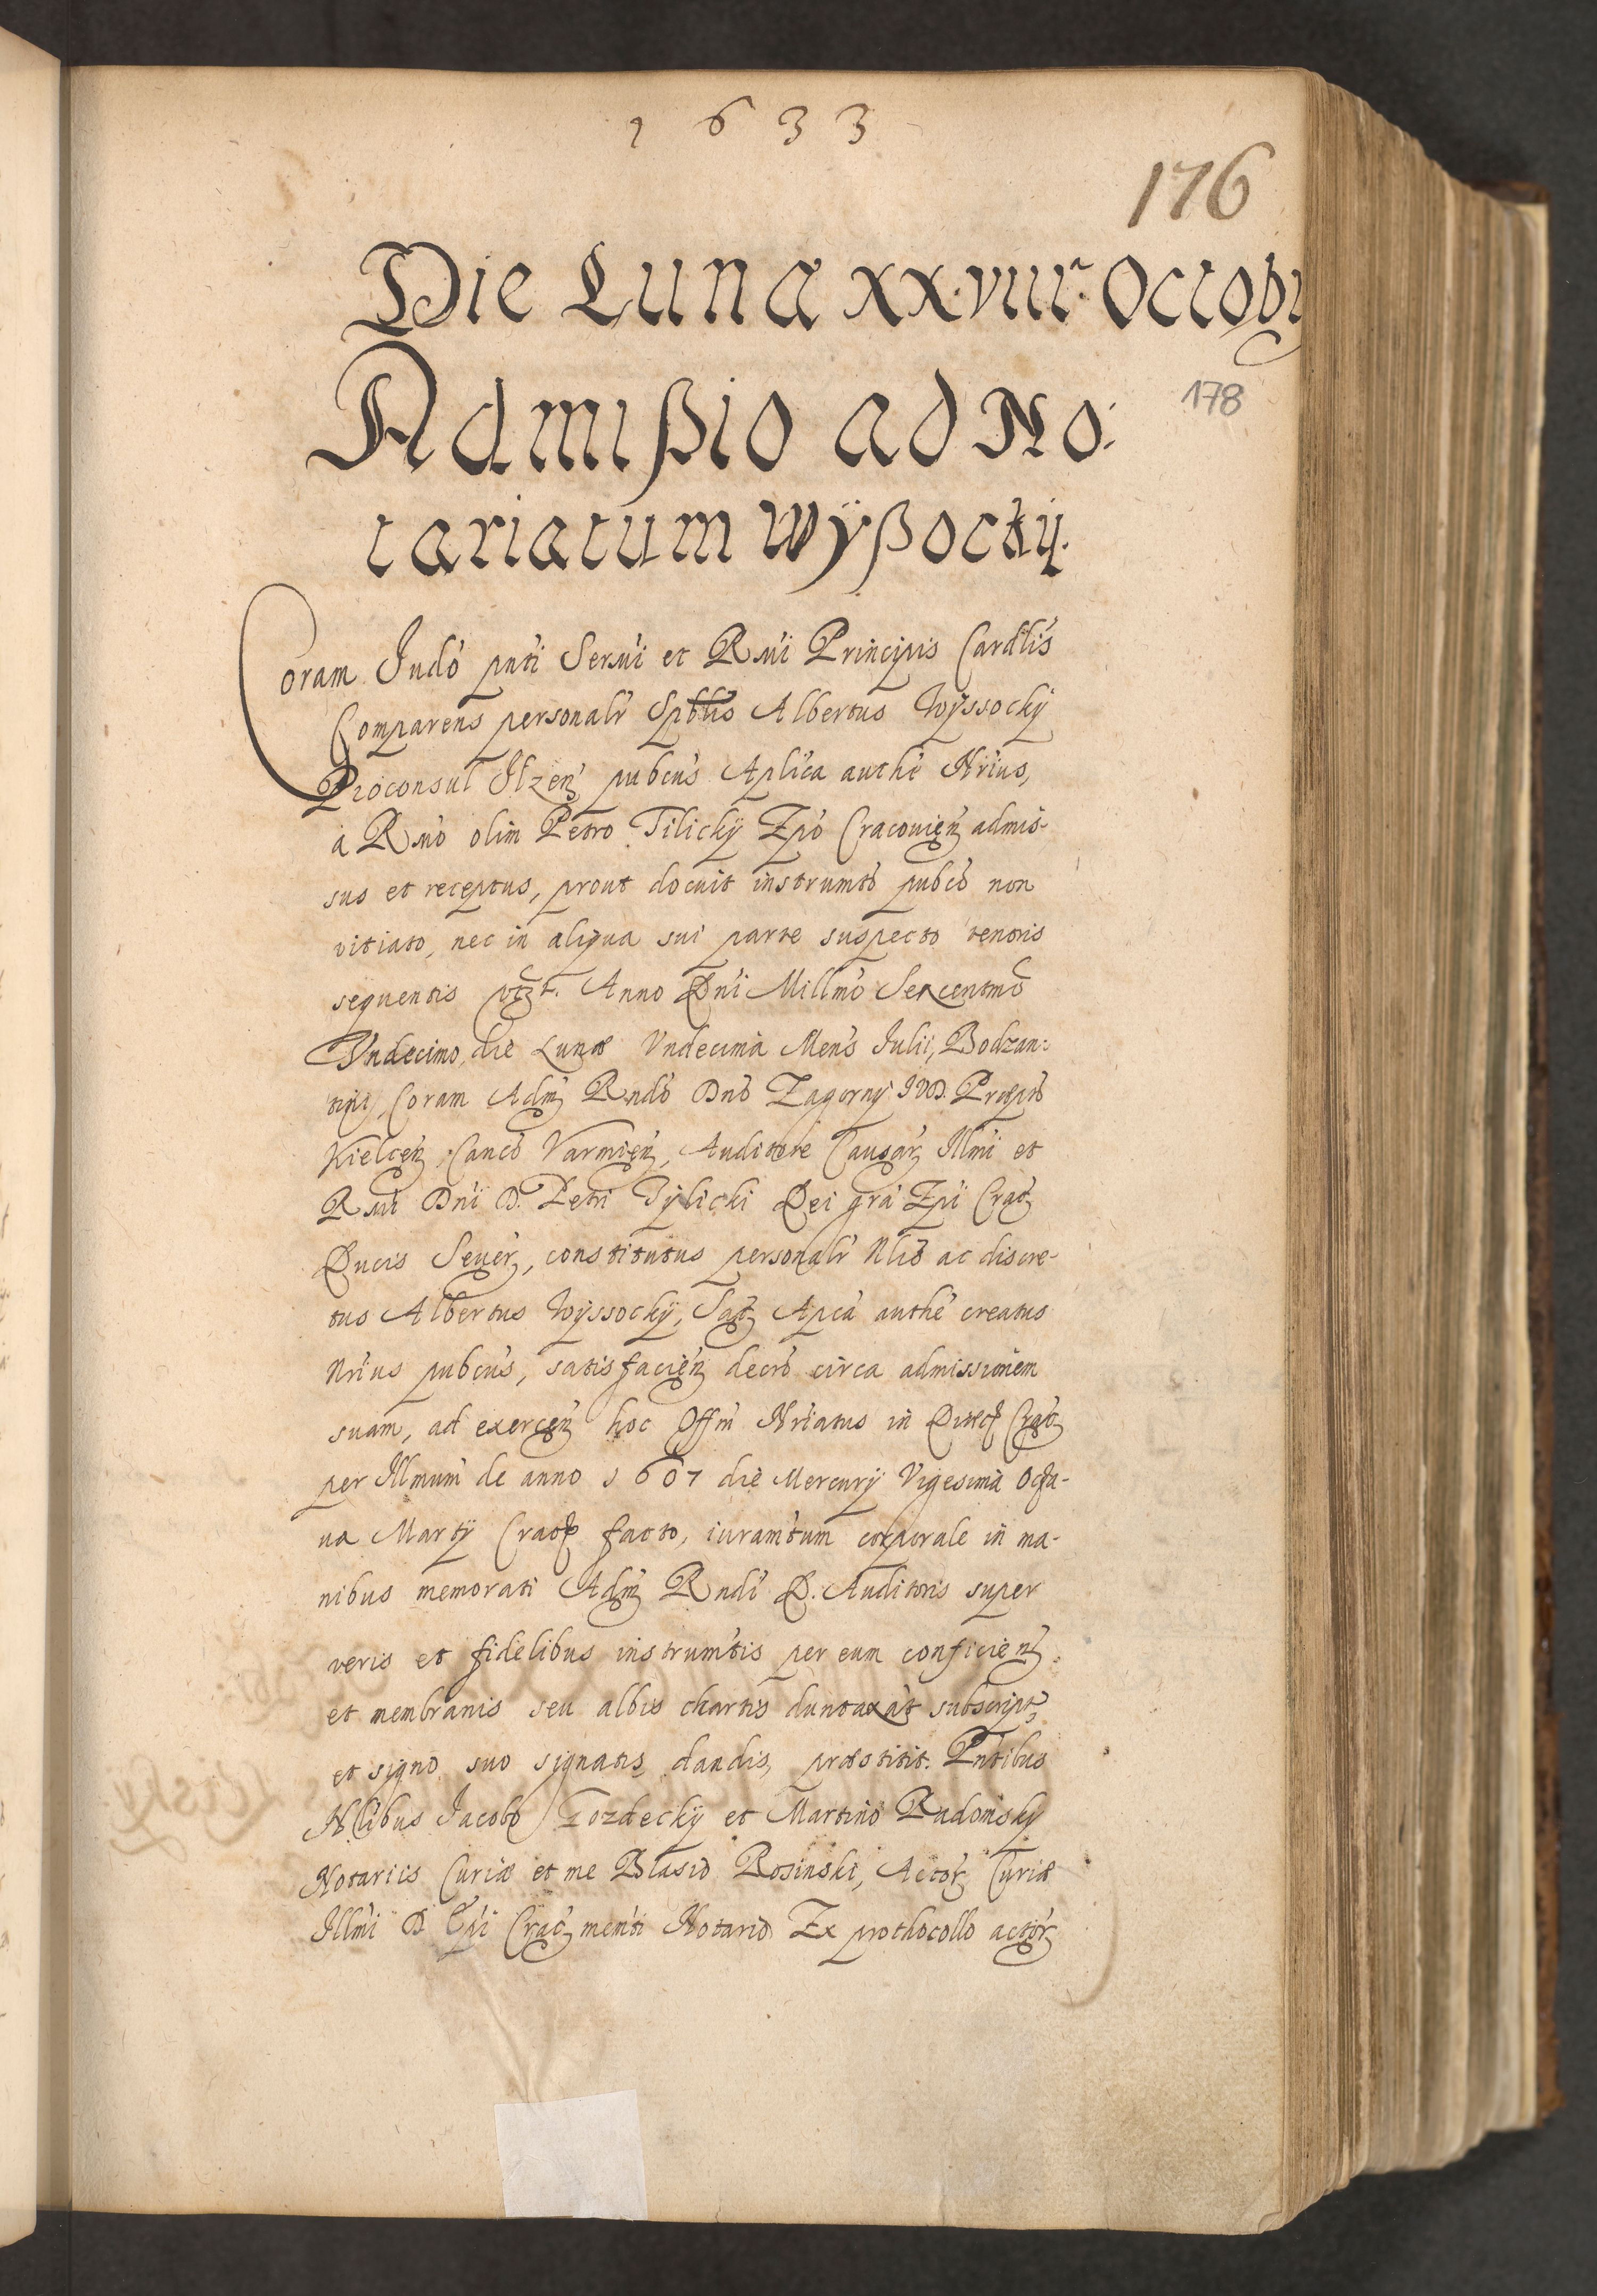 1633
176
Die Lunæ xxviiii Octobr
178
Admißio ad No:
tariatum Wÿßockÿ.
Coram Iudo pnti Sermi et Rmi Principis Cardlis
Comparens personalr Spblis Albertus Wÿssockÿ
Proconsul Ilzen pubcus Aplica authe Nrius,
a Rmo olim Petro Tilickÿ Epo Cracouien admis-
sus et receptus, prout docuit instrumto pubco non
vitiato, nec in aliqua sui parte suspecto tenoris
sequentis vtzt. Anno Dni Millmo Sexcentmo
Vndecimo, die Lunæ Vndecima Mens Iulii, Bodzan:
tini, Coram Adm Rndo Dno Zagorny IVD. Præpto
Kielcen, Canco Varmien, Auditore Causar Illmi et
Rmi Dni D. Petri Tÿlicki Dei gra Epi Crac
Ducis Seuer, constitutus personalr Nlis ac discre-
tus Albertus Wÿssockÿ, Sac Apca authe creatus
Nrius pubcus, satisfacien decro circa admissionem
suam, ad exercen hoc Offm Nriatus in Diœc Crac
per Illmum de anno 1607 die Mercurÿ Vigesima Octa-
ua Martÿ Crac facto, iuramtum corporale in ma-
nibus memorati Adm Rndi D. Auditoris super
veris et fidelibus instrumtis per eum conficien,
et membranis seu albis chartis duntaxat subscript,
et signo suo signatis dandis, præstitit. Pntibus
Nlibus Iacobo Gozdeckÿ et Martino Radomsky
Notariis Curiæ et me Blasio Rosinski, Actor Curiæ
Illmi D Epi Crac menti Notario Ex prothocollo actor